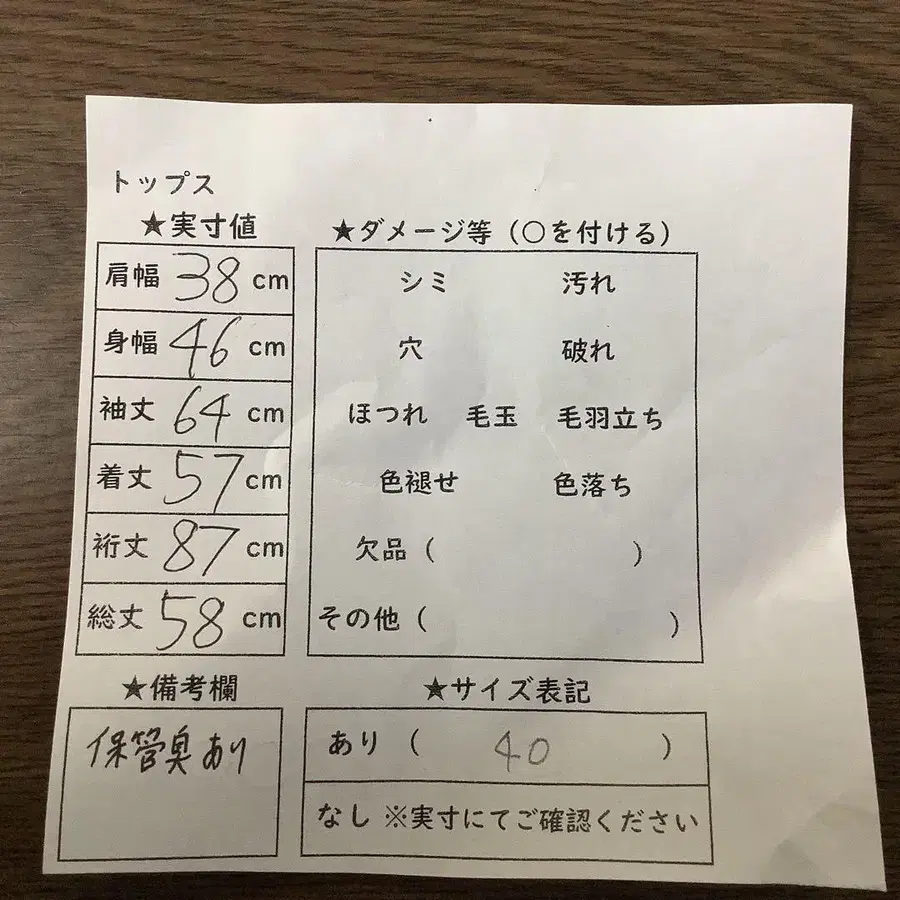 トップス
★実寸値
肩幅 38 cm
身幅 46 cm
袖丈 64 cm
着丈 57 cm
裄丈 87 cm
総丈 58 cm
★ダメージ等（○を付ける）
シミ 汚れ
穴 破れ
ほつれ 毛玉 毛羽立ち
色褪せ 色落ち
欠品（ ）
その他（ ）
★備考欄
保管臭あり
★サイズ表記
あり（ 40 ）
なし ※実寸にてご確認ください